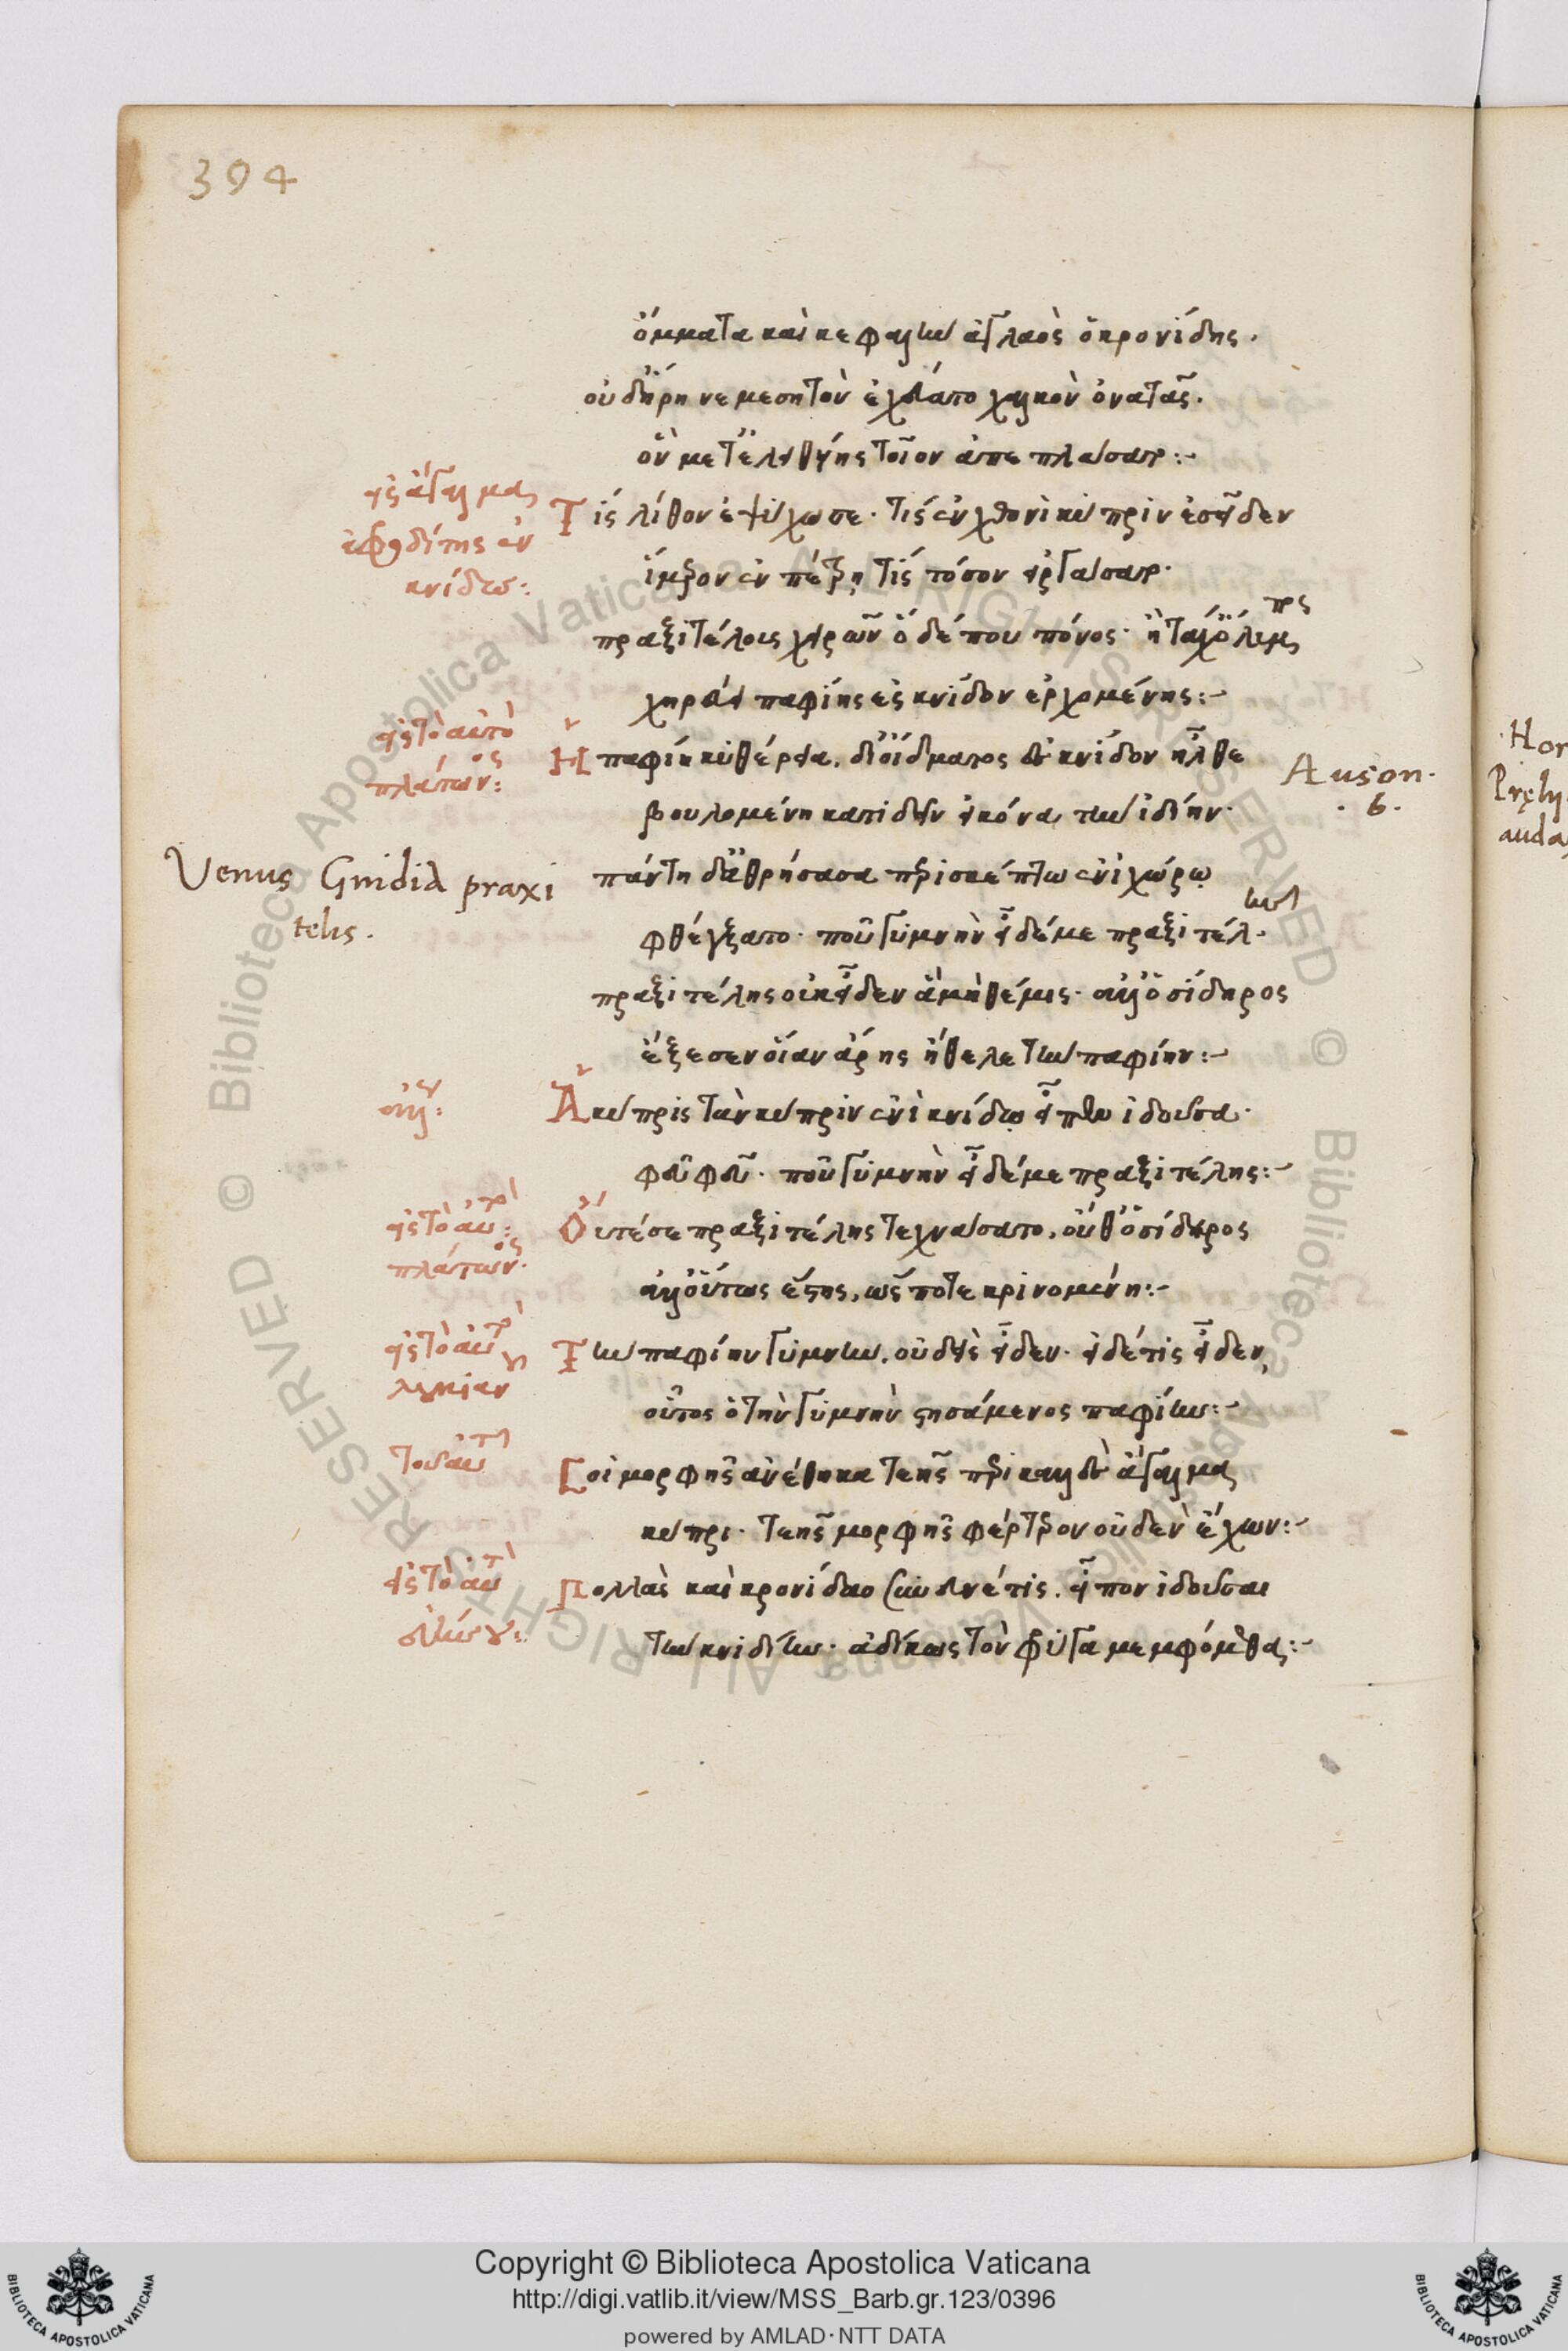 394
ὄμματα καὶ κεφαλὴν ἀγλαὸς ὁ κρονίδης.
οὐδ' ἥρη νεμεσητὸν ἐχεύατο χαλκὸν ὀνατᾶς.
ὃν μετ' εἰλειθυίης τοῖον ἀπεπλάσατο:-
εἰς ἄγαλμα
ἀφροδίτης ἐν
κνίδῳ:
Τίς λίθον ἐψύχωσε. τίς ἐν χθονὶ κύπριν ἐσεῖδεν
ἵμερον ἐν πέτρῃ τίς τόσον εἰργάσατο.
πραξιτέλους χειρῶν ὅδέ που πόνος. ἢ τάχ' ὄλυμπος
χηρεύει παφίης εἰς κνίδον ἐρχομένης:-
εἰς τὸ αὐτὸ
πλάτωνος:
Ἡ παφίη κυθέρεια, δι' οἴδματος ἐς κνίδον ἦλθε
βουλομένη κατιδεῖν εἰκόνα τὴν ἰδίην.
Auson.
.6.
Venus Gnidia praxi
telis.
πάντη δ' ἀθρήσασα περισκέπτω ἐνὶ χώρῳ
φθέγξατο. ποῦ γυμνὴν εἶδέ με πραξιτέλης.
πραξιτέλης οὐκ εἶδεν ἃ μὴ θέμις. ἀλλ' ὁ σίδηρος
ἔξεσεν οἵαν ἄρης ἤθελε τὴν παφίην:-
ἄλλο:
Ἁ κύπρις τὰν κύπριν ἐνὶ κνίδῳ εἶπεν ἰδοῦσα.
φεῦ φεῦ. ποῦ γυμνὴν εἶδέ με πραξιτέλης:-
εἰς τὸ αὐτό:
πλάτωνος.
Οὔτέ σε πραξιτέλης τεχνάσατο, οὔθ' ὁ σίδηρος
ἀλλ' οὕτως ἔστης, ὥς ποτε κρινομένη:-
εἰς τὸ αὐτὸ
λουκιανοῦ
Τὴν παφίην γυμνὴν, οὐδεὶς εἶδεν. εἰ δέ τις εἶδεν,
οὗτος ὁ τὴν γυμνὴν στησάμενος παφίην:-
τοῦ αὐτοῦ
Σοὶ μορφῆς ἀνέθηκα τεῆς περικαλλὲς ἄγαλμα
κύπρι. τεῆς μορφῆς φέρτερον οὐδὲν ἔχων:-
εἰς τὸ αὐτὸ
εὐήνου:
Παλλὰς καὶ κρονίδαο συνευνέτις, εἶπον ἰδοῦσαι
τὴν κνιδίην. ἀδίκως τὸν φρύγα μεμφόμεθα:-
Copyright © Biblioteca Apostolica Vaticana
http://digi.vatlib.it/view/MSS_Barb.gr.123/0396
powered by AMLAD·NTT DATA